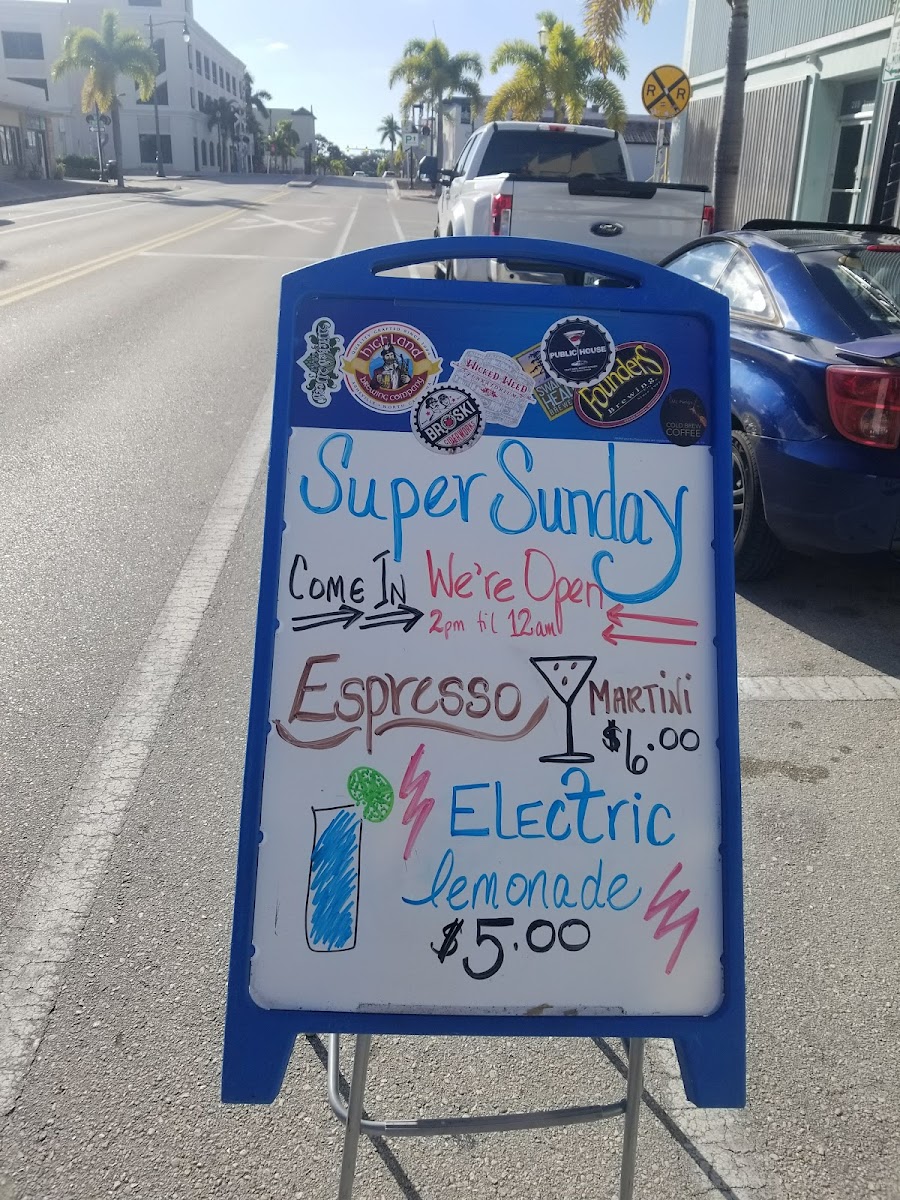 R R
HIGHLAND
BREWING COMPANY
WICKED WEED
PUBLIC HOUSE
BROSKI
FOUNDERS
BREWING
COLD BREW
COFFEE
Super Sunday
COME IN We're Open
2pm til 12am
Espresso MARTINI
$6.00
Electric
lemonade
$5.00